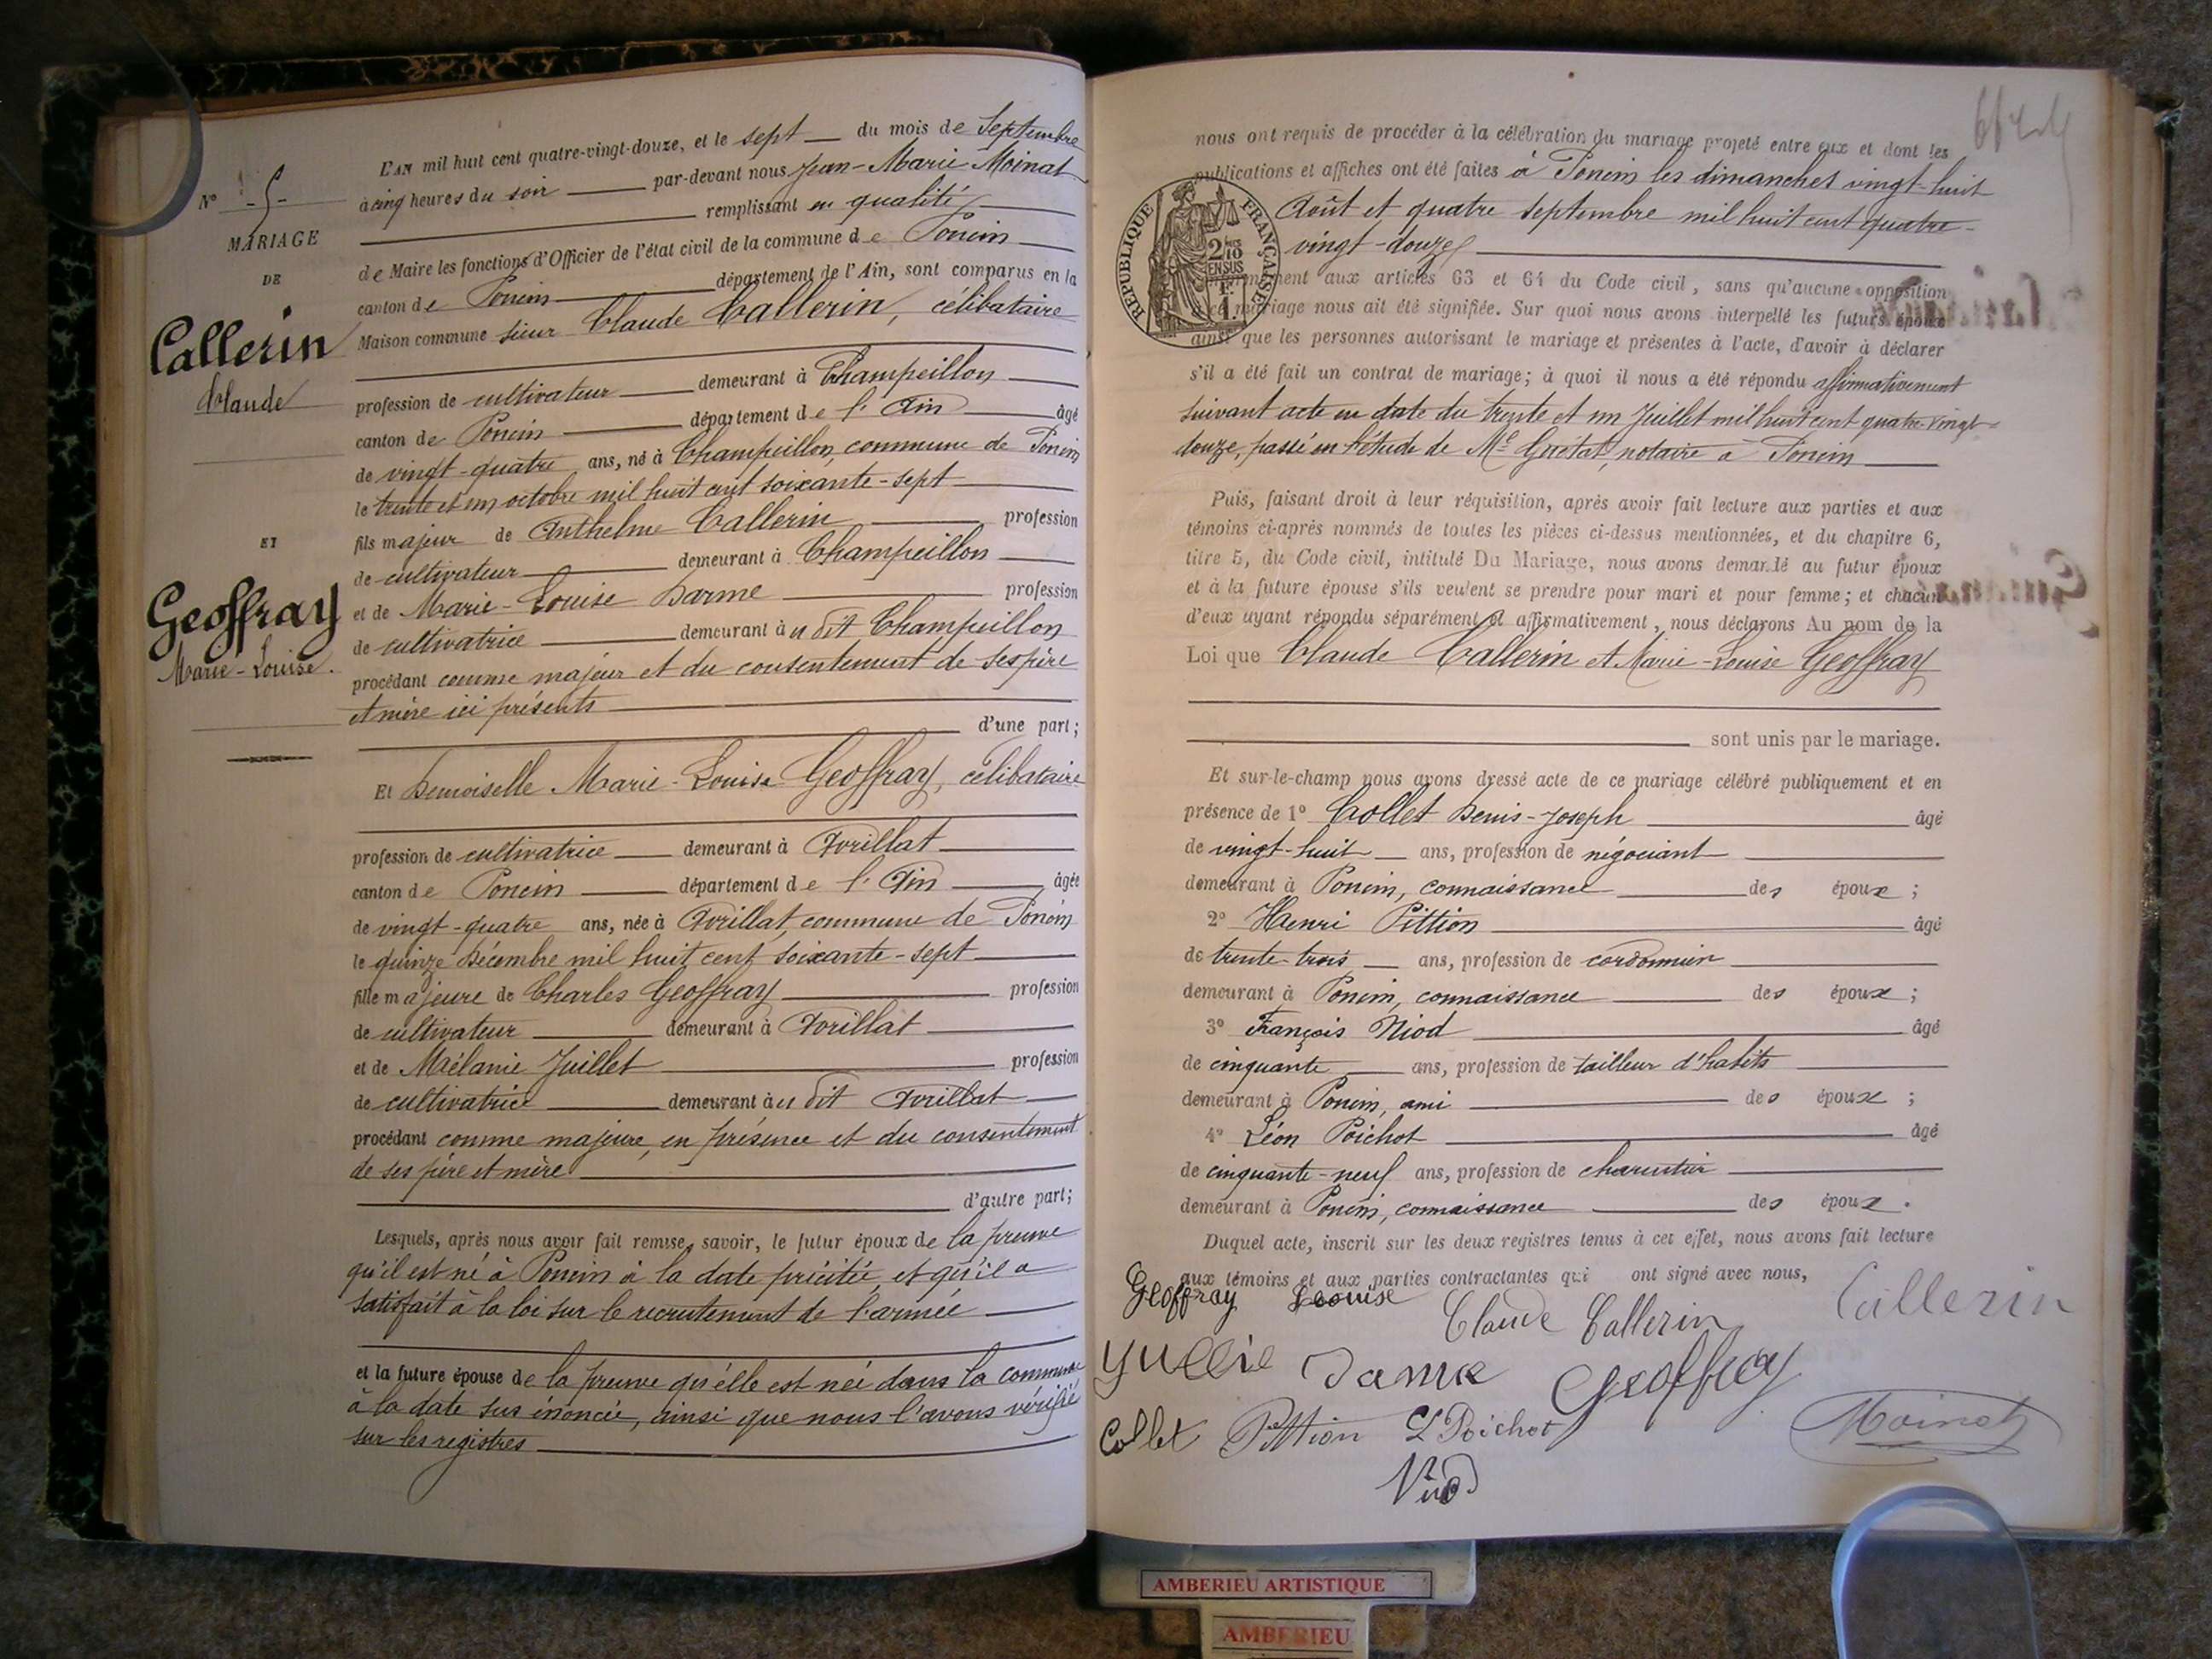 N° 5
MARIAGE
DE
Callerin
Claude
ET
Geoffray
Marie-Louise.
L'AN mil huit cent quatre-vingt-douze, et le sept du mois de Septembre
à cinq heures du soir par-devant nous Jean-Marie Moinat
remplissant en qualité
de Maire les fonctions d'Officier de l'état civil de la commune de Poncin
canton de Poncin département de l'Ain, sont comparus en la
Maison commune sieur Claude Callerin, célibataire
profession de cultivateur demeurant à Champeillon
canton de Poncin département de l'Ain âgé
de vingt-quatre ans, né à Champeillon, commune de Poncin
le trente et un octobre mil huit cent soixante-sept
fils majeur de Anthelme Callerin profession
de cultivateur demeurant à Champeillon
et de Marie-Louise Darme profession
de cultivatrice demeurant au dit Champeillon
procédant comme majeur et du consentement de ses père
et mère ici présents
d'une part;
Et Demoiselle Marie-Louise Geoffray, célibataire
profession de cultivatrice demeurant à Avrillat
canton de Poncin département de l'Ain âgée
de vingt-quatre ans, née à Avrillat, commune de Poncin
le quinze Décembre mil huit cent soixante-sept
fille majeure de Charles Geoffray profession
de cultivateur demeurant à Avrillat
et de Mélanie Juillet profession
de cultivatrice demeurant au dit Avrillat
procédant comme majeure, en présence et du consentement
de ses père et mère
d'autre part;
Lesquels, après nous avoir fait remise, savoir, le futur époux de la preuve
qu'il est né à Poncin à la date précitée, et qu'il a
satisfait à la loi sur le recrutement de l'armée
et la future épouse de la preuve qu'elle est née dans la commune
à la date sus énoncée, ainsi que nous l'avons vérifié
sur les registres
nous ont requis de procéder à la célébration du mariage projeté entre eux et dont les
publications et affiches ont été faites à Poncin les dimanches vingt-huit
Août et quatre septembre mil huit cent quatre-
vingt-douze
RÉPUBLIQUE FRANÇAISE
2/10 EN SUS
1 F.
conformément aux articles 63 et 64 du Code civil, sans qu'aucune opposition
à ce mariage nous ait été signifiée. Sur quoi nous avons interpellé les futurs époux
ainsi que les personnes autorisant le mariage et présentes à l'acte, d'avoir à déclarer
s'il a été fait un contrat de mariage; à quoi il nous a été répondu affirmativement
suivant acte en date du trente et un Juillet mil huit cent quatre-vingt-
douze, passé en l'étude de Me Guétat, notaire à Poncin
Puis, faisant droit à leur réquisition, après avoir fait lecture aux parties et aux
témoins ci-après nommés de toutes les pièces ci-dessus mentionnées, et du chapitre 6,
titre 5, du Code civil, intitulé Du Mariage, nous avons demandé au futur époux
et à la future épouse s'ils veulent se prendre pour mari et pour femme; et chacun
d'eux ayant répondu séparément et affirmativement, nous déclarons Au nom de la
Loi que Claude Callerin et Marie-Louise Geoffray
sont unis par le mariage.
Et sur-le-champ nous avons dressé acte de ce mariage célébré publiquement et en
présence de 1° Collet Denis-Joseph âgé
de vingt-huit ans, profession de négociant
demeurant à Poncin, connaissance des époux;
2° Henri Pittion âgé
de trente-trois ans, profession de cordonnier
demeurant à Poncin, connaissance des époux;
3° François Niod âgé
de cinquante ans, profession de tailleur d'habits
demeurant à Poncin, ami des époux;
4° Léon Poichot âgé
de cinquante-neuf ans, profession de charcutier
demeurant à Poncin, connaissance des époux.
Duquel acte, inscrit sur les deux registres tenus à cet effet, nous avons fait lecture
aux témoins et aux parties contractantes qui ont signé avec nous,
Geoffray Louise Claude Callerin Callerin
Geoffray
Collet Pittion L Poichot Moinat
Niod
AMBERIEU ARTISTIQUE
AMBERIEU